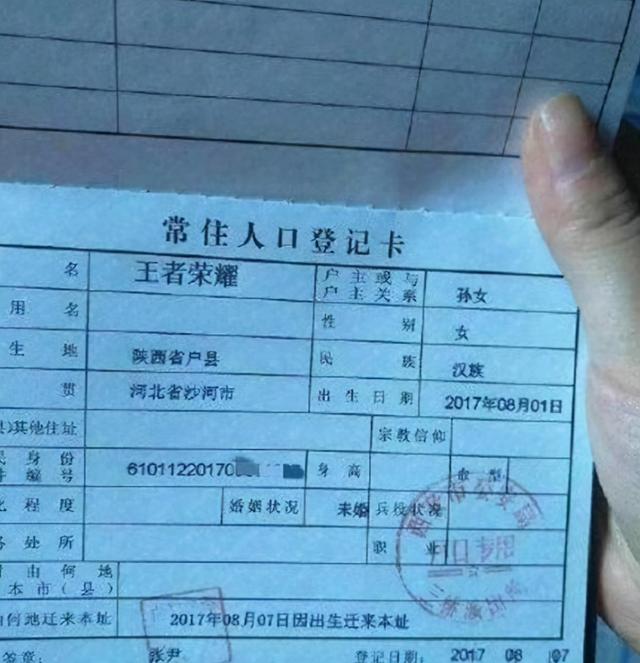 常住人口登记卡
名 王者荣耀 户主或与户主关系 孙女
用名 性别 女
生地 陕西省户县 民族 汉族
贯 河北省沙河市 出生日期 2017年08月01日
其他住址 宗教信仰
身份
编号 6101122017 身高 血型
程度 婚姻状况 未婚 兵役状况
处所 职业
由何地
本市(县)
何地迁来本址 2017年08月07日因出生迁来本址
签章: 张尹 登记日期: 2017 08 07